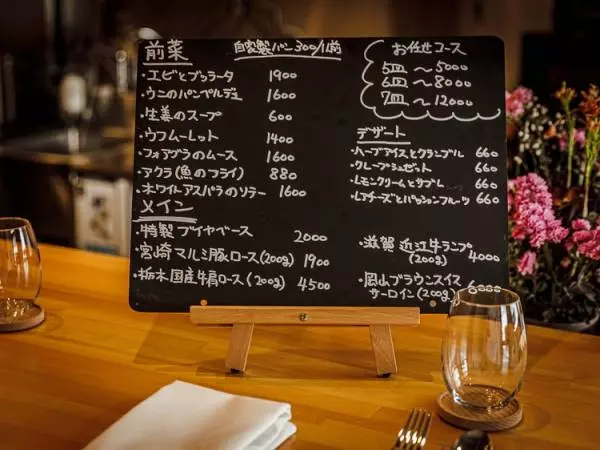 前菜
自家製パン 300/1人前
・エビとブッラータ 1900
・ウニのパンペルデュ 1600
・生姜のスープ 600
・ウフムーレット 1400
・フォアグラのムース 1600
・アクラ(魚のフライ) 880
・ホワイトアスパラのソテー 1600
メイン
・特製ブイヤベース 2000
・宮崎マルミ豚ロース(200g) 1900
・栃木国産牛肩ロース(200g) 4500
お任せコース
5皿 〜 5000
6皿 〜 8000
7皿 〜 12000
デザート
・ハーブアイスとクランブル 660
・クレープシュゼット 660
・レモンクリームとサブレ 660
・レアチーズとパッションフルーツ 660
・滋賀 近江牛ランプ
(200g) 4000
・岡山ブラウンスイス
サーロイン(200g) 6000